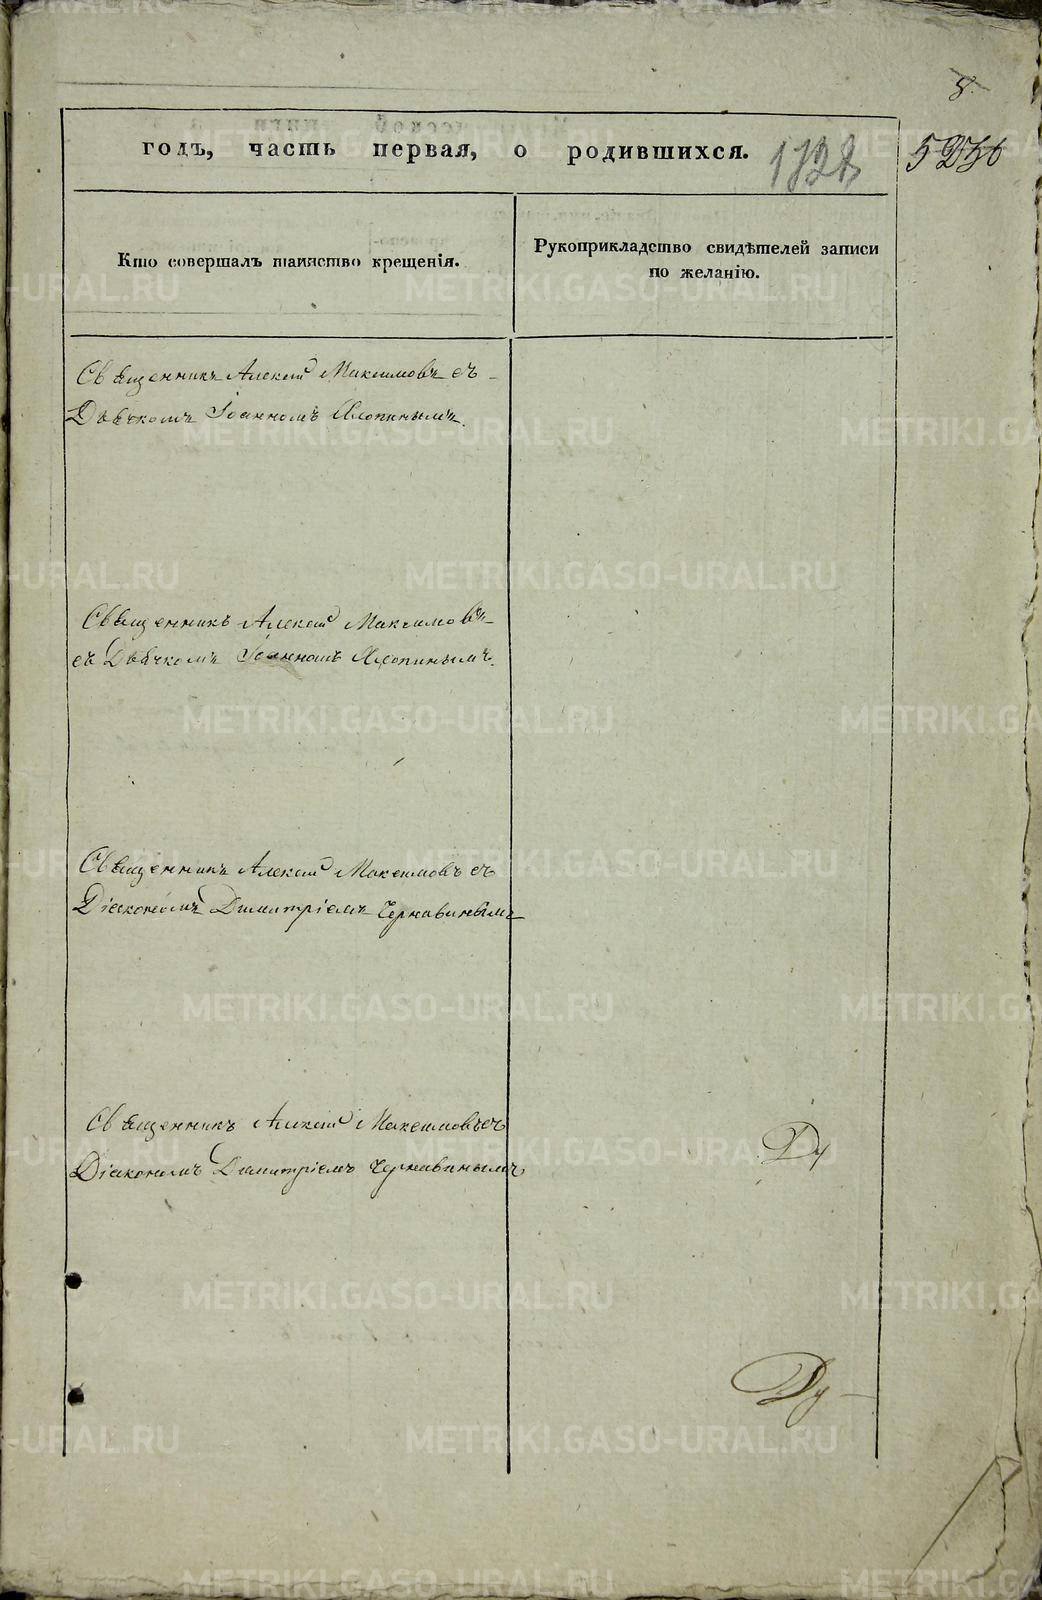 8.
годъ, часть первая, о родившихся.
Кто совершалъ таинство крещенія.
Рукоприкладство свидѣтелей записи
по желанію.
Священникъ Алексій Максимовъ съ
Дьячкомъ Іоанномъ Хлопинымъ.
Священникъ Алексій Максимовъ
съ Дьячкомъ Іоанномъ Хлопинымъ.
Священникъ Алексій Максимовъ съ
Діакономъ Димитріемъ Чернавинымъ
Священникъ Алексій Максимовъ съ
Діакономъ Димитріемъ Чернавинымъ
METRIKI.GASO-URAL.RU